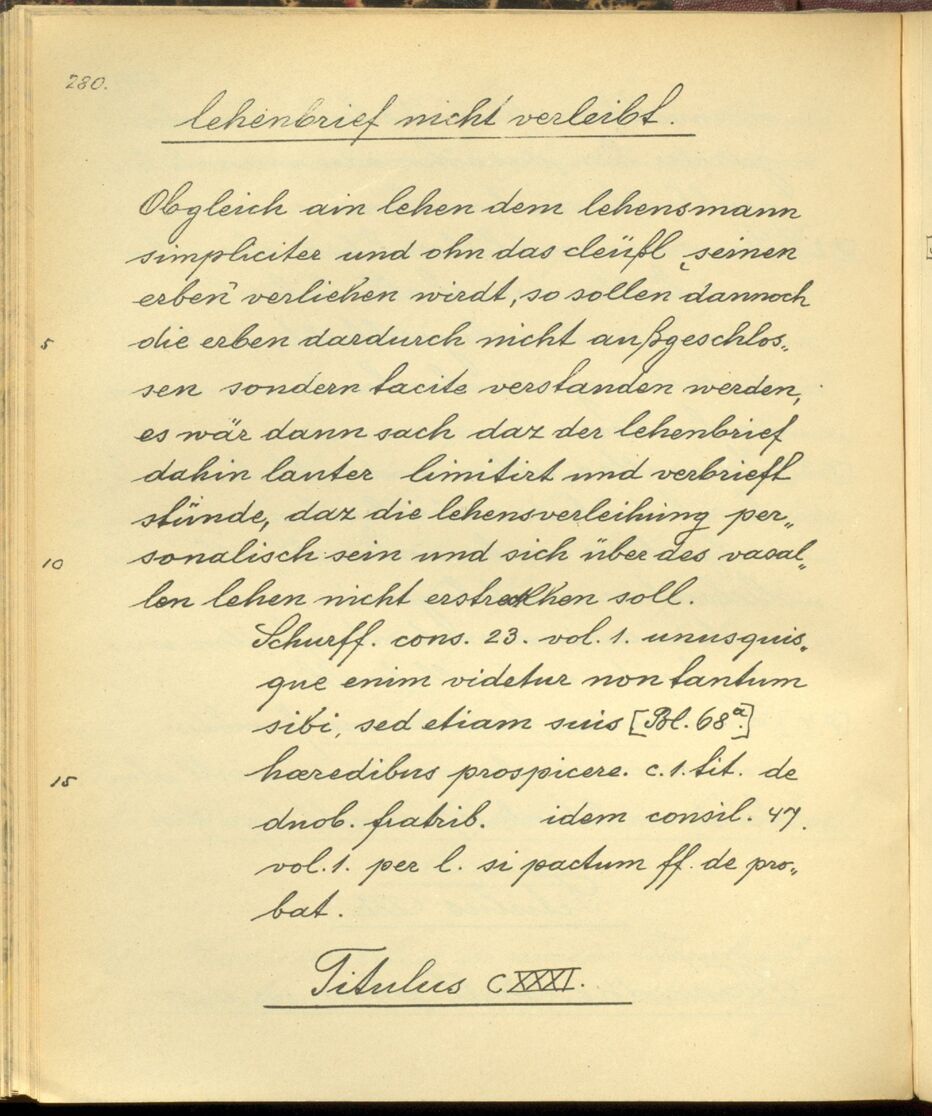 280.
lehenbrief nicht verleibt.
Obgleich ain lehen dem lehensmann
simpliciter und ohn das cleüßl „seinen
erben“ verliehen wirdt, so sollen dannoch
5 die erben dardurch nicht außgeschlos„
sen sondern tacite verstanden werden,
es wär dann sach daz der lehenbrief
dahin lauter limitirt und verbrieft
stünde, daz die lehensverleihung per„
10 sonalisch sein und sich über des vasal„
len lehen nicht erstrekhen soll.
Schurff. cons. 23. vol. 1. unusquis„
que enim videtur non tantum
sibi, sed etiam suis [Bl. 68a.]
15 hæredibus prospicere. c. 1. tit. de
duob. fratrib. idem consil. 47.
vol. 1. per l. si pactum ff. de pro„
bat.
Titulus CXXXI.